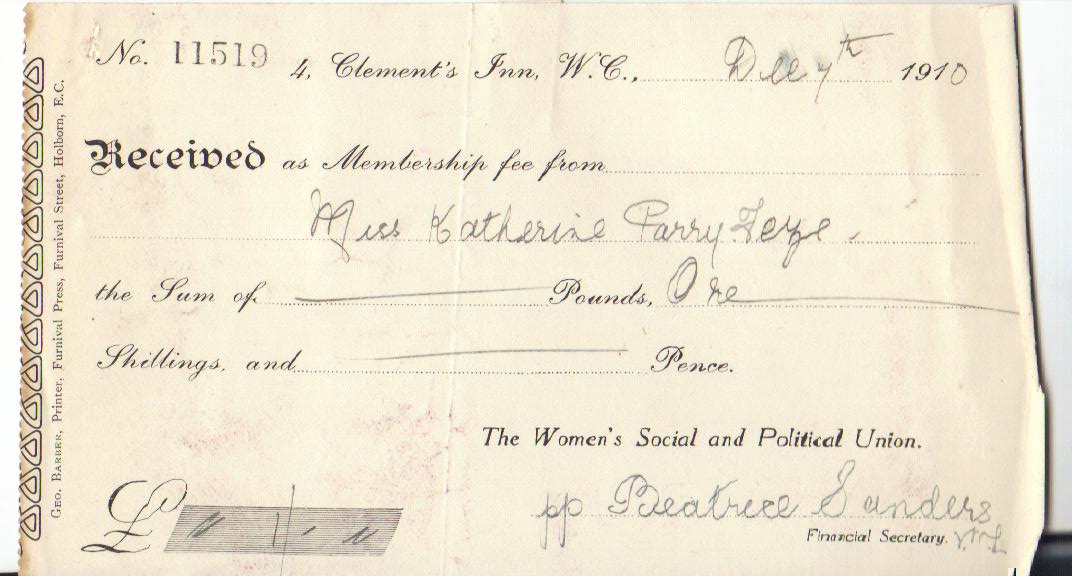 No. 11519 4, Clement's Inn, W.C., Dec 7th 1910
Received as Membership fee from
Miss Katherine Parry
the Sum of Pounds, One
Shillings, and Pence.
The Women's Social and Political Union.
£ " 1 - "
pp Beatrice Sanders
Financial Secretary.
Geo. Barber, Printer, Furnival Press, Furnival Street, Holborn, E.C.